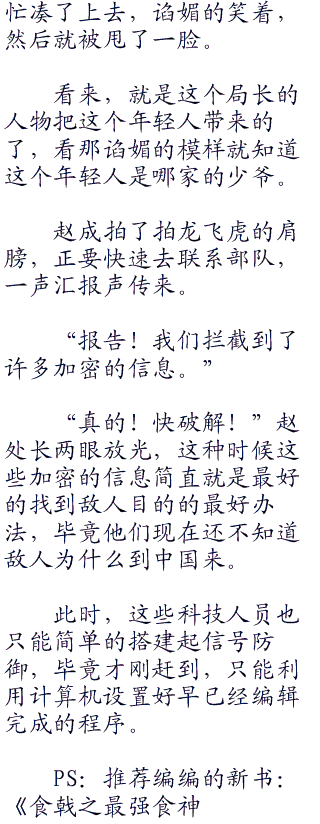 忙凑了上去，谄媚的笑着，
然后就被甩了一脸。
看来，就是这个局长的
人物把这个年轻人带来的
了，看那谄媚的模样就知道
这个年轻人是哪家的少爷。
赵成拍了拍龙飞虎的肩
膀，正要快速去联系部队，
一声汇报声传来。
“报告！我们拦截到了
许多加密的信息。”
“真的！快破解！”赵
处长两眼放光，这种时候这
些加密的信息简直就是最好
的找到敌人目的的最好办
法，毕竟他们现在还不知道
敌人为什么到中国来。
此时，这些科技人员也
只能简单的搭建起信号防
御，毕竟才刚赶到，只能利
用计算机设置好早已经编辑
完成的程序。
PS：推荐编编的新书：
《食戟之最强食神